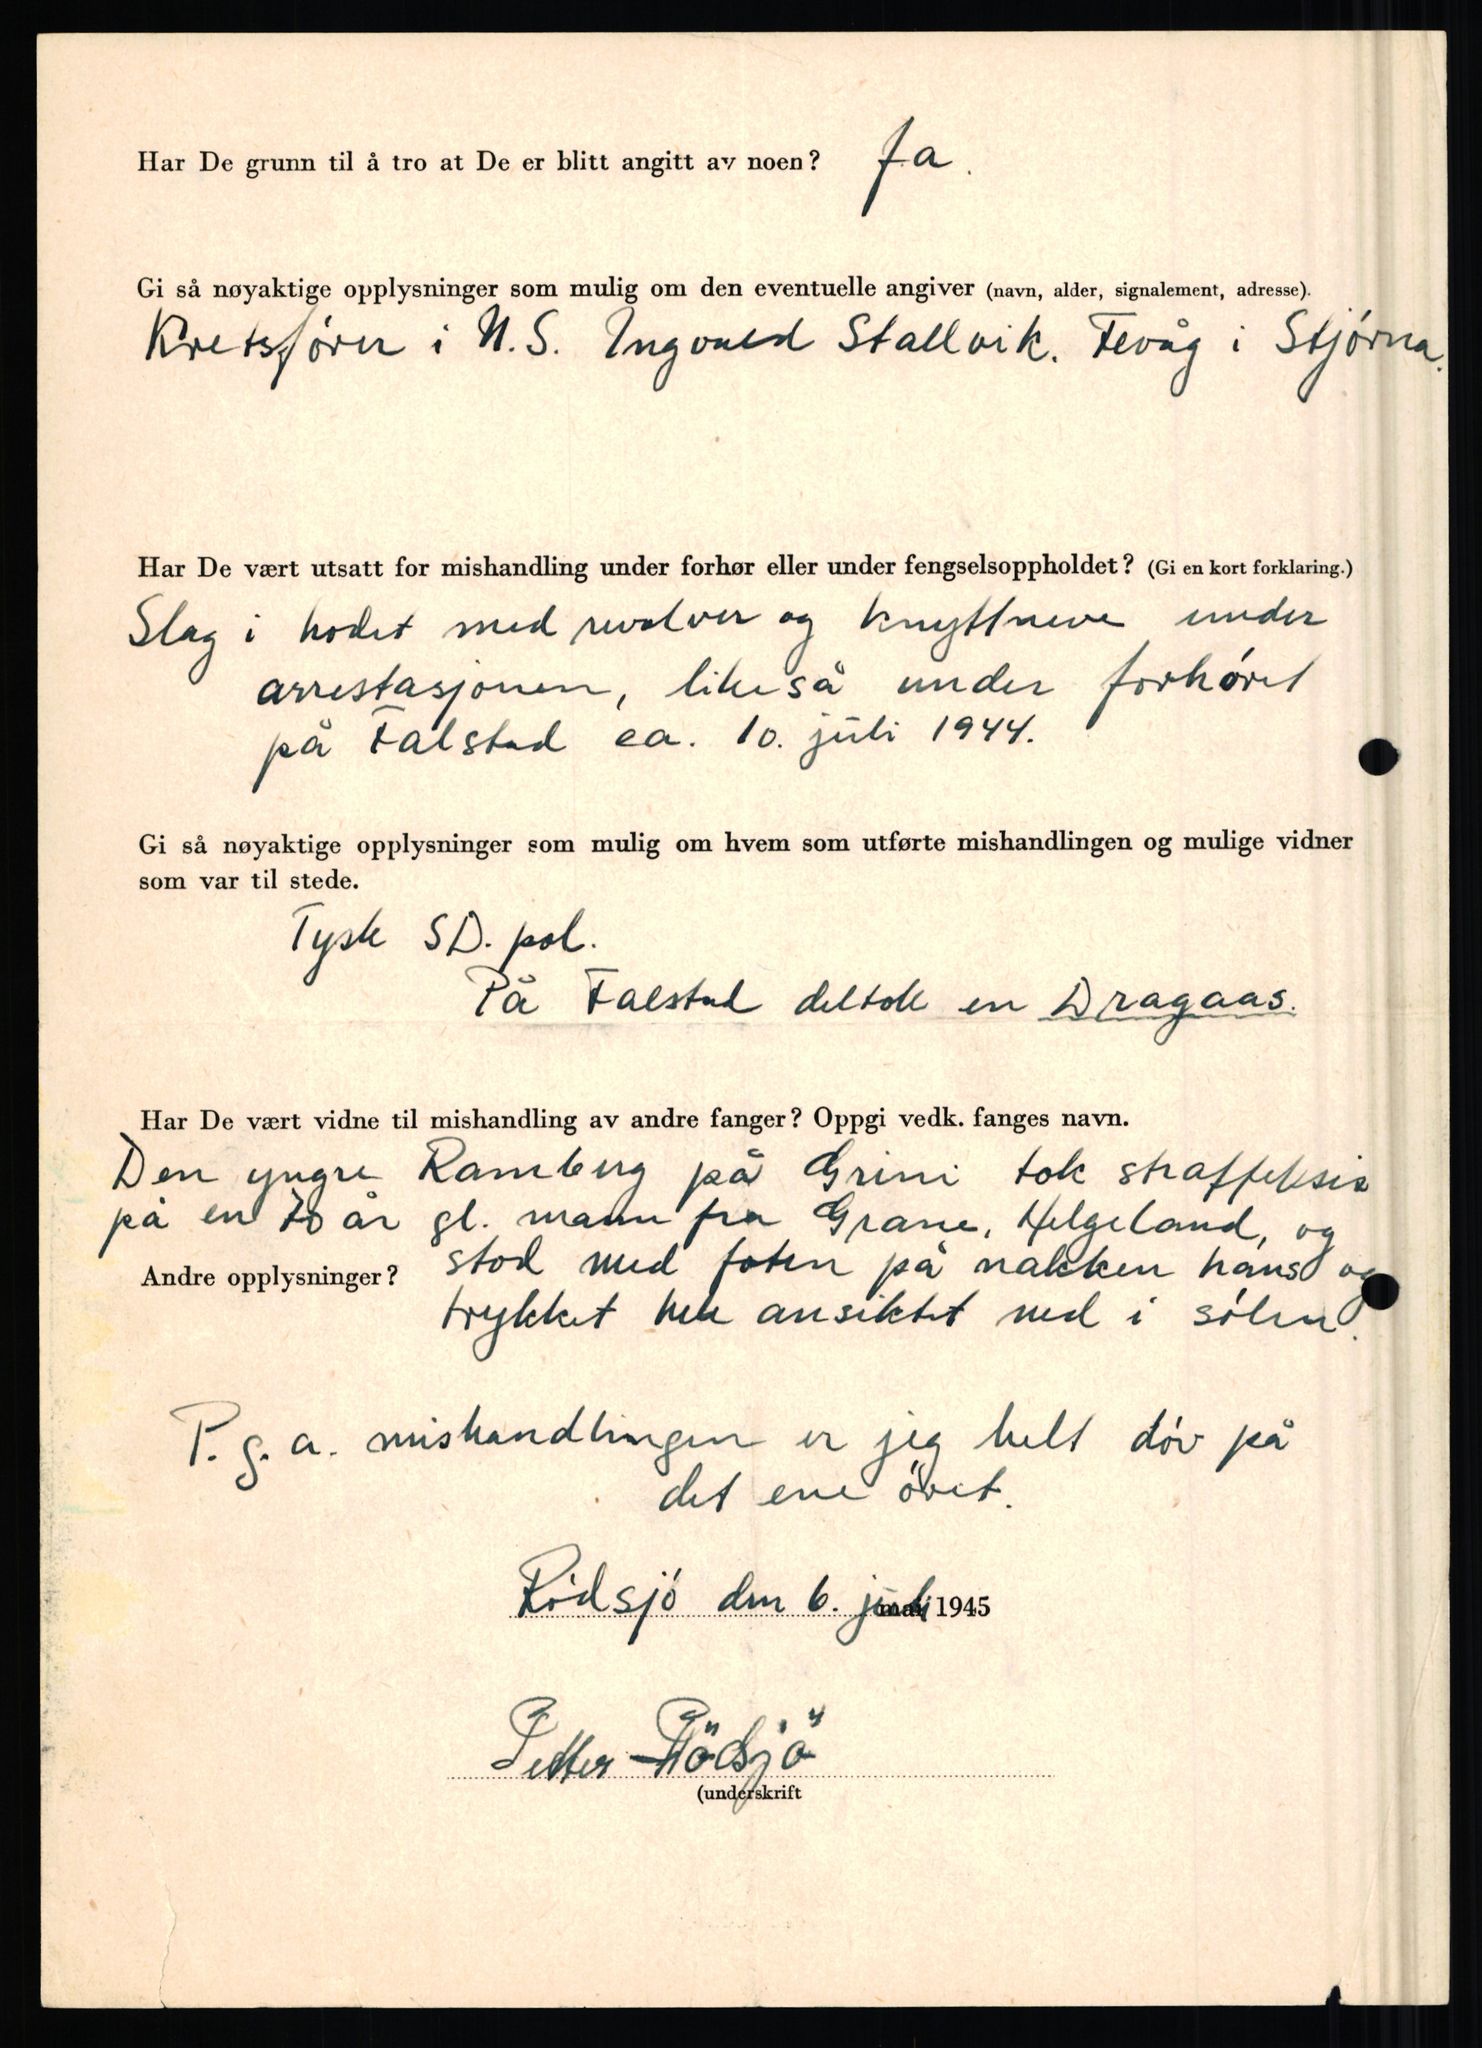 Har De grunn til å tro at De er blitt angitt av noen? Ja.
Gi så nøyaktige opplysninger som mulig om den eventuelle angiver (navn, alder, signalement, adresse).
Kretsfører i N.S. Ingvald Stallvik. Fevåg i Stjørna.
Har De vært utsatt for mishandling under forhør eller under fengselsoppholdet? (Gi en kort forklaring.)
Slag i hodet med revolver og knyttneve under
arrestasjonen, likeså under forhøret
på Falstad ca. 10. juli 1944.
Gi så nøyaktige opplysninger som mulig om hvem som utførte mishandlingen og mulige vidner
som var til stede.
Tysk SD. pol.
På Falstad deltok en Dragaas.
Har De vært vidne til mishandling av andre fanger? Oppgi vedk. fanges navn.
Den yngre Ramberg på Grini tok straffeksis
på en 70 år gl. mann fra Grane, Helgeland, og
Andre opplysninger? stod med foten på nakken hans og
trykket hele ansiktet ned i sølen.
P. g. a. mishandlingen er jeg helt døv på
det ene øret.
Rødsjø den 6. juli mai 1945
Petter Rödsjö
(underskrift